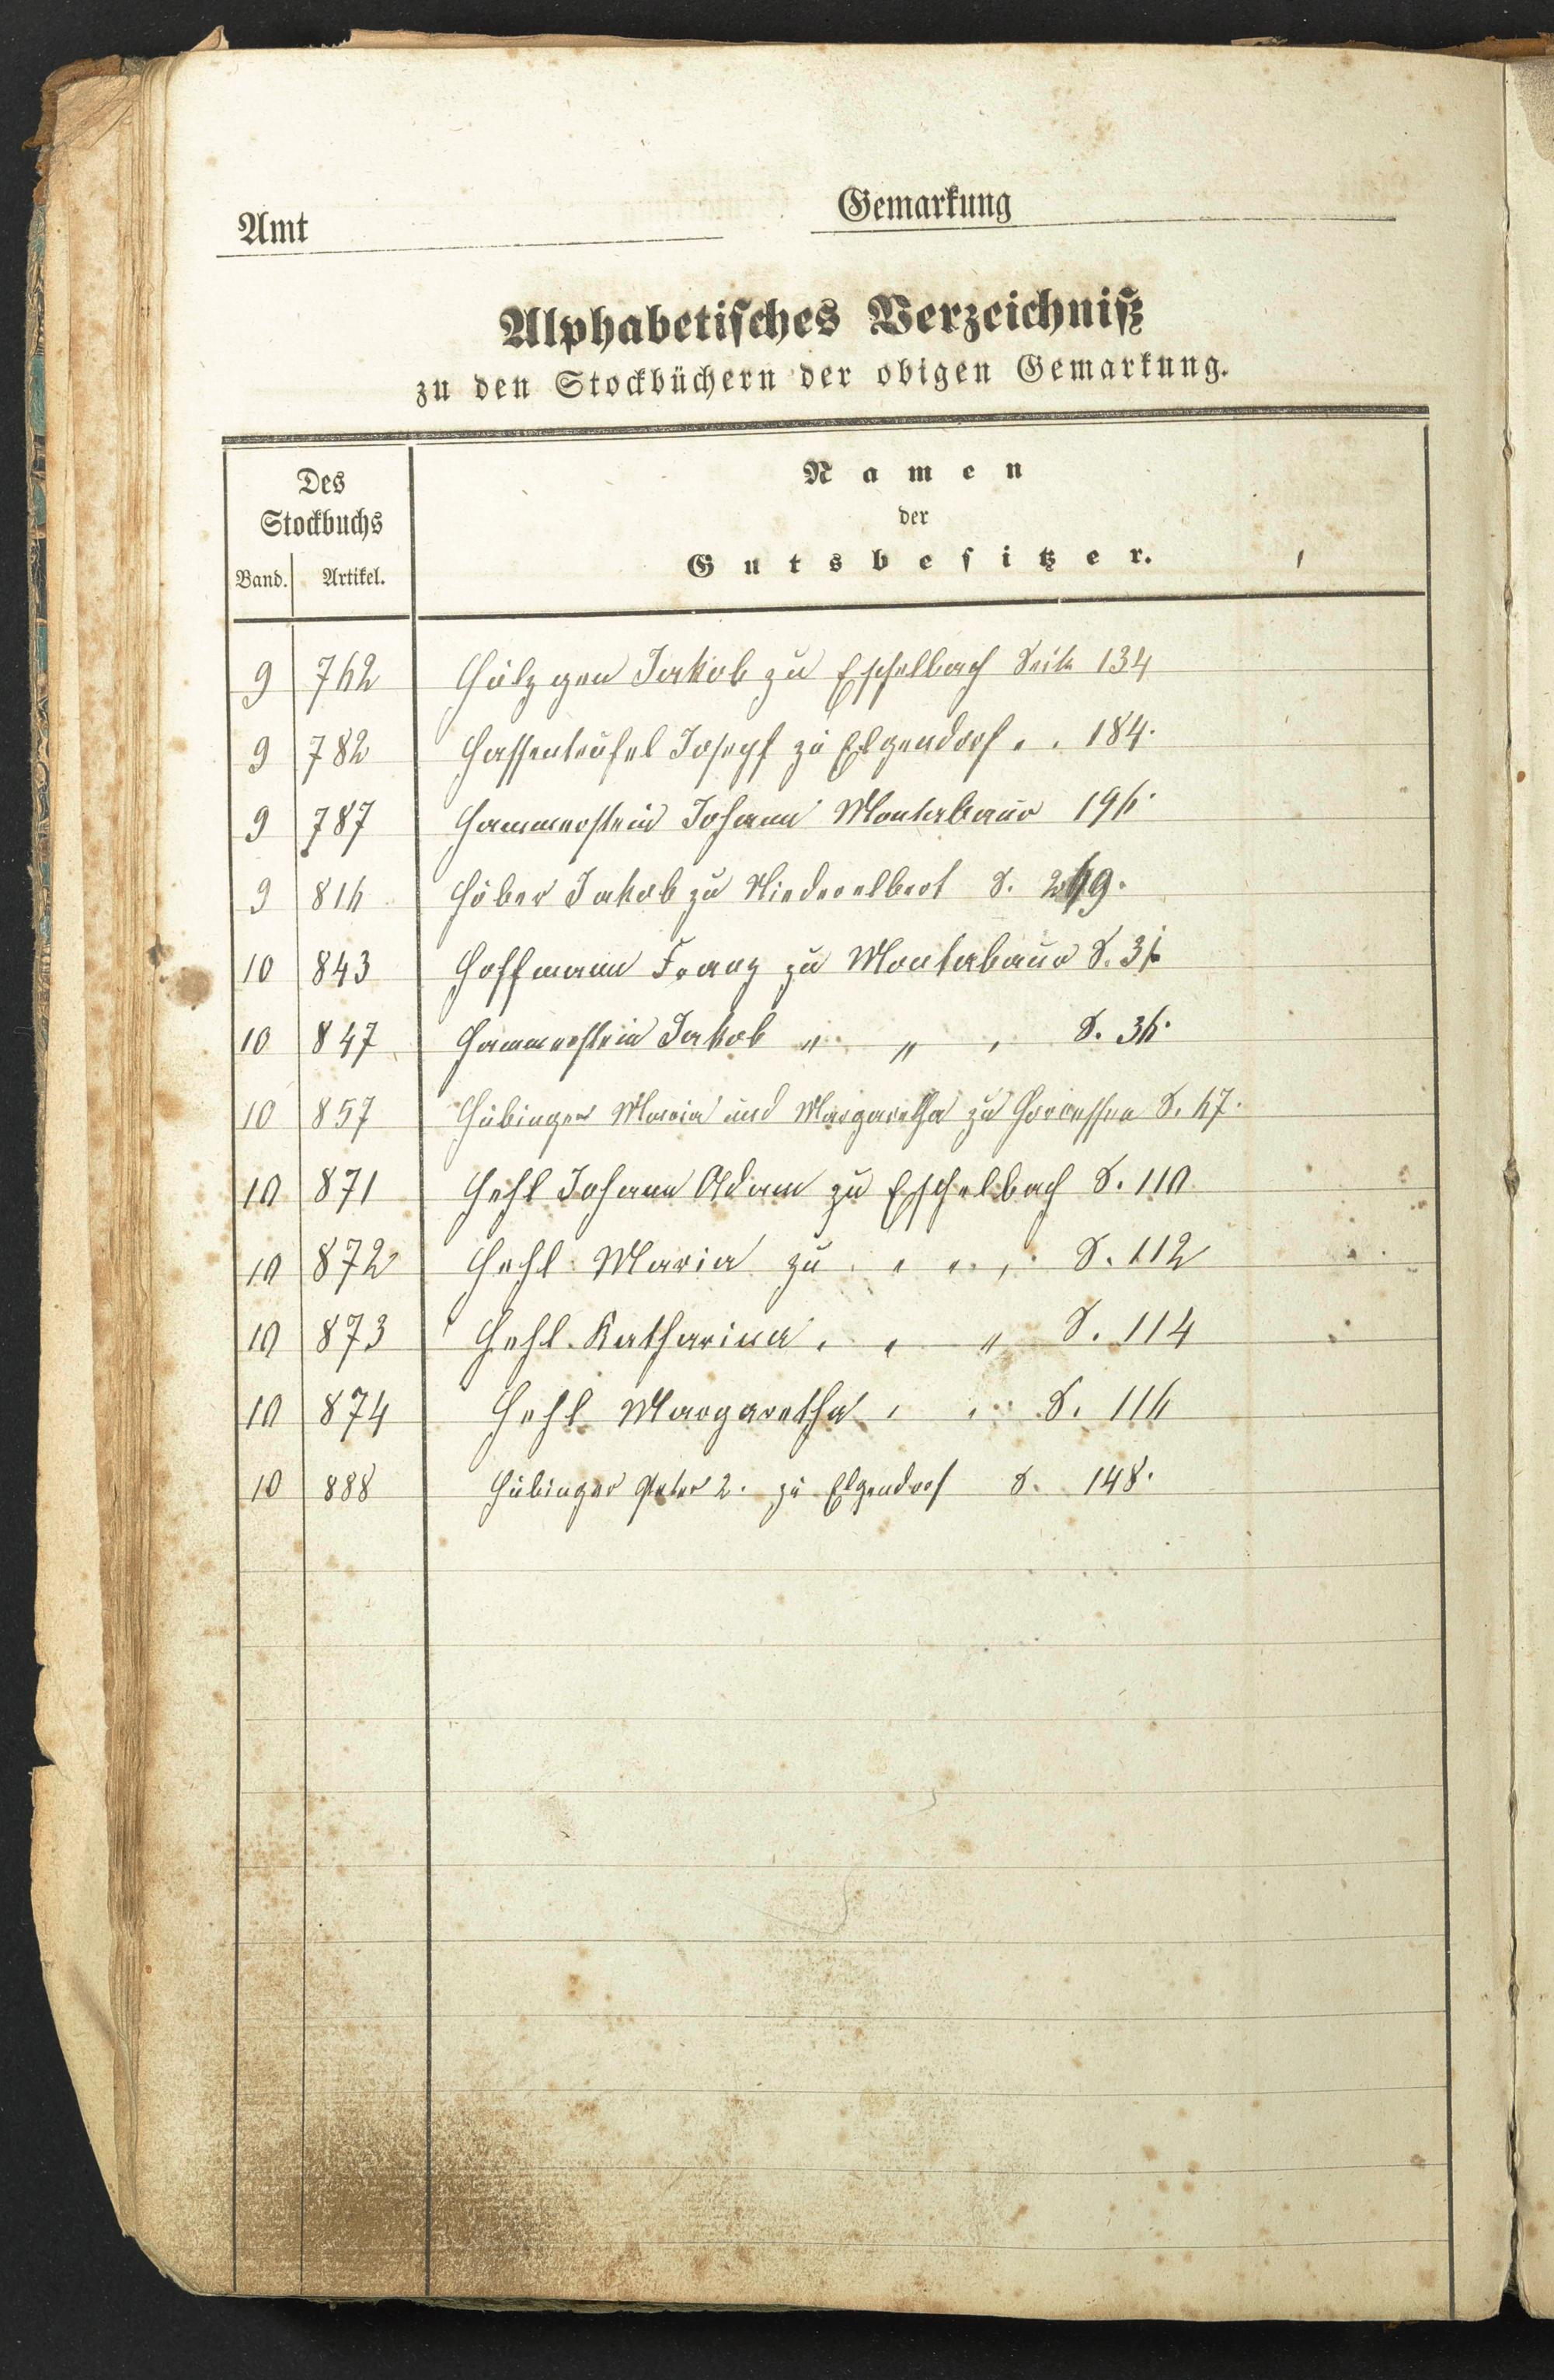 Amt
Gemarkung
Alphabetisches Verzeichniß
zu den Stockbüchern der obigen Gemarkung.
Des
Stockbuchs
Band. Artikel.
Namen
der
Gutsbesitzer.
9 762 Hülzgen Jakob zu Eschelbach Seite 134
9 782 Hassenteufel Joseph zu Elgendorf " " 184.
9 787 Hammerstein Johann Montabaur 196.
9 816 Höber Jakob zu Niederelbert S. 269.
10 843 Hoffmann Franz zu Montabaur S.
10 847 Hammerstein Jakob " " " S. 36.
10 857 Hübinger Maria und Margaretha zu Horressen S. 67.
10 871 Hehl Johann Adam zu Eschelbach S. 110
10 872 Hehl Maria zu " " " S. 112
10 873 Hehl Katharina " " " S. 114
10 874 Hehl Margaretha " " S. 116
10 888 Hübinger Peter 2. zu Elgendorf S. 148.